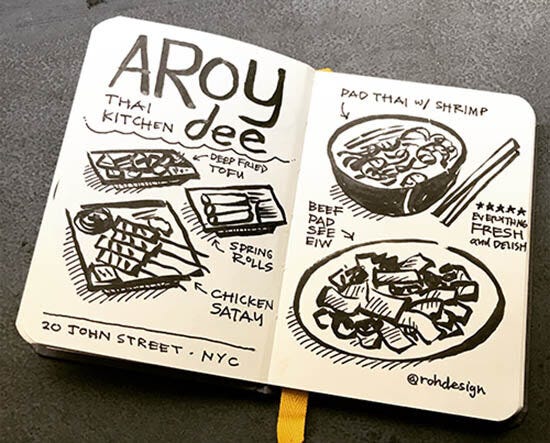 AROY
dee
THAI
KITCHEN
DEEP FRIED
TOFU
SPRING
ROLLS
CHICKEN
SATAY
20 JOHN STREET · NYC
PAD THAI W/ SHRIMP
★★★★★
EVERYTHING
FRESH
and DELISH
BEEF
PAD
SEE
EIW
@rohdesign